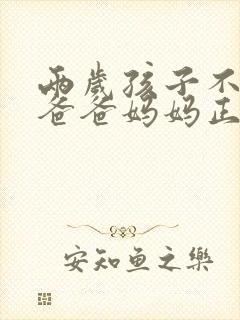 两岁孩子不
爸爸妈妈正
安知鱼之乐